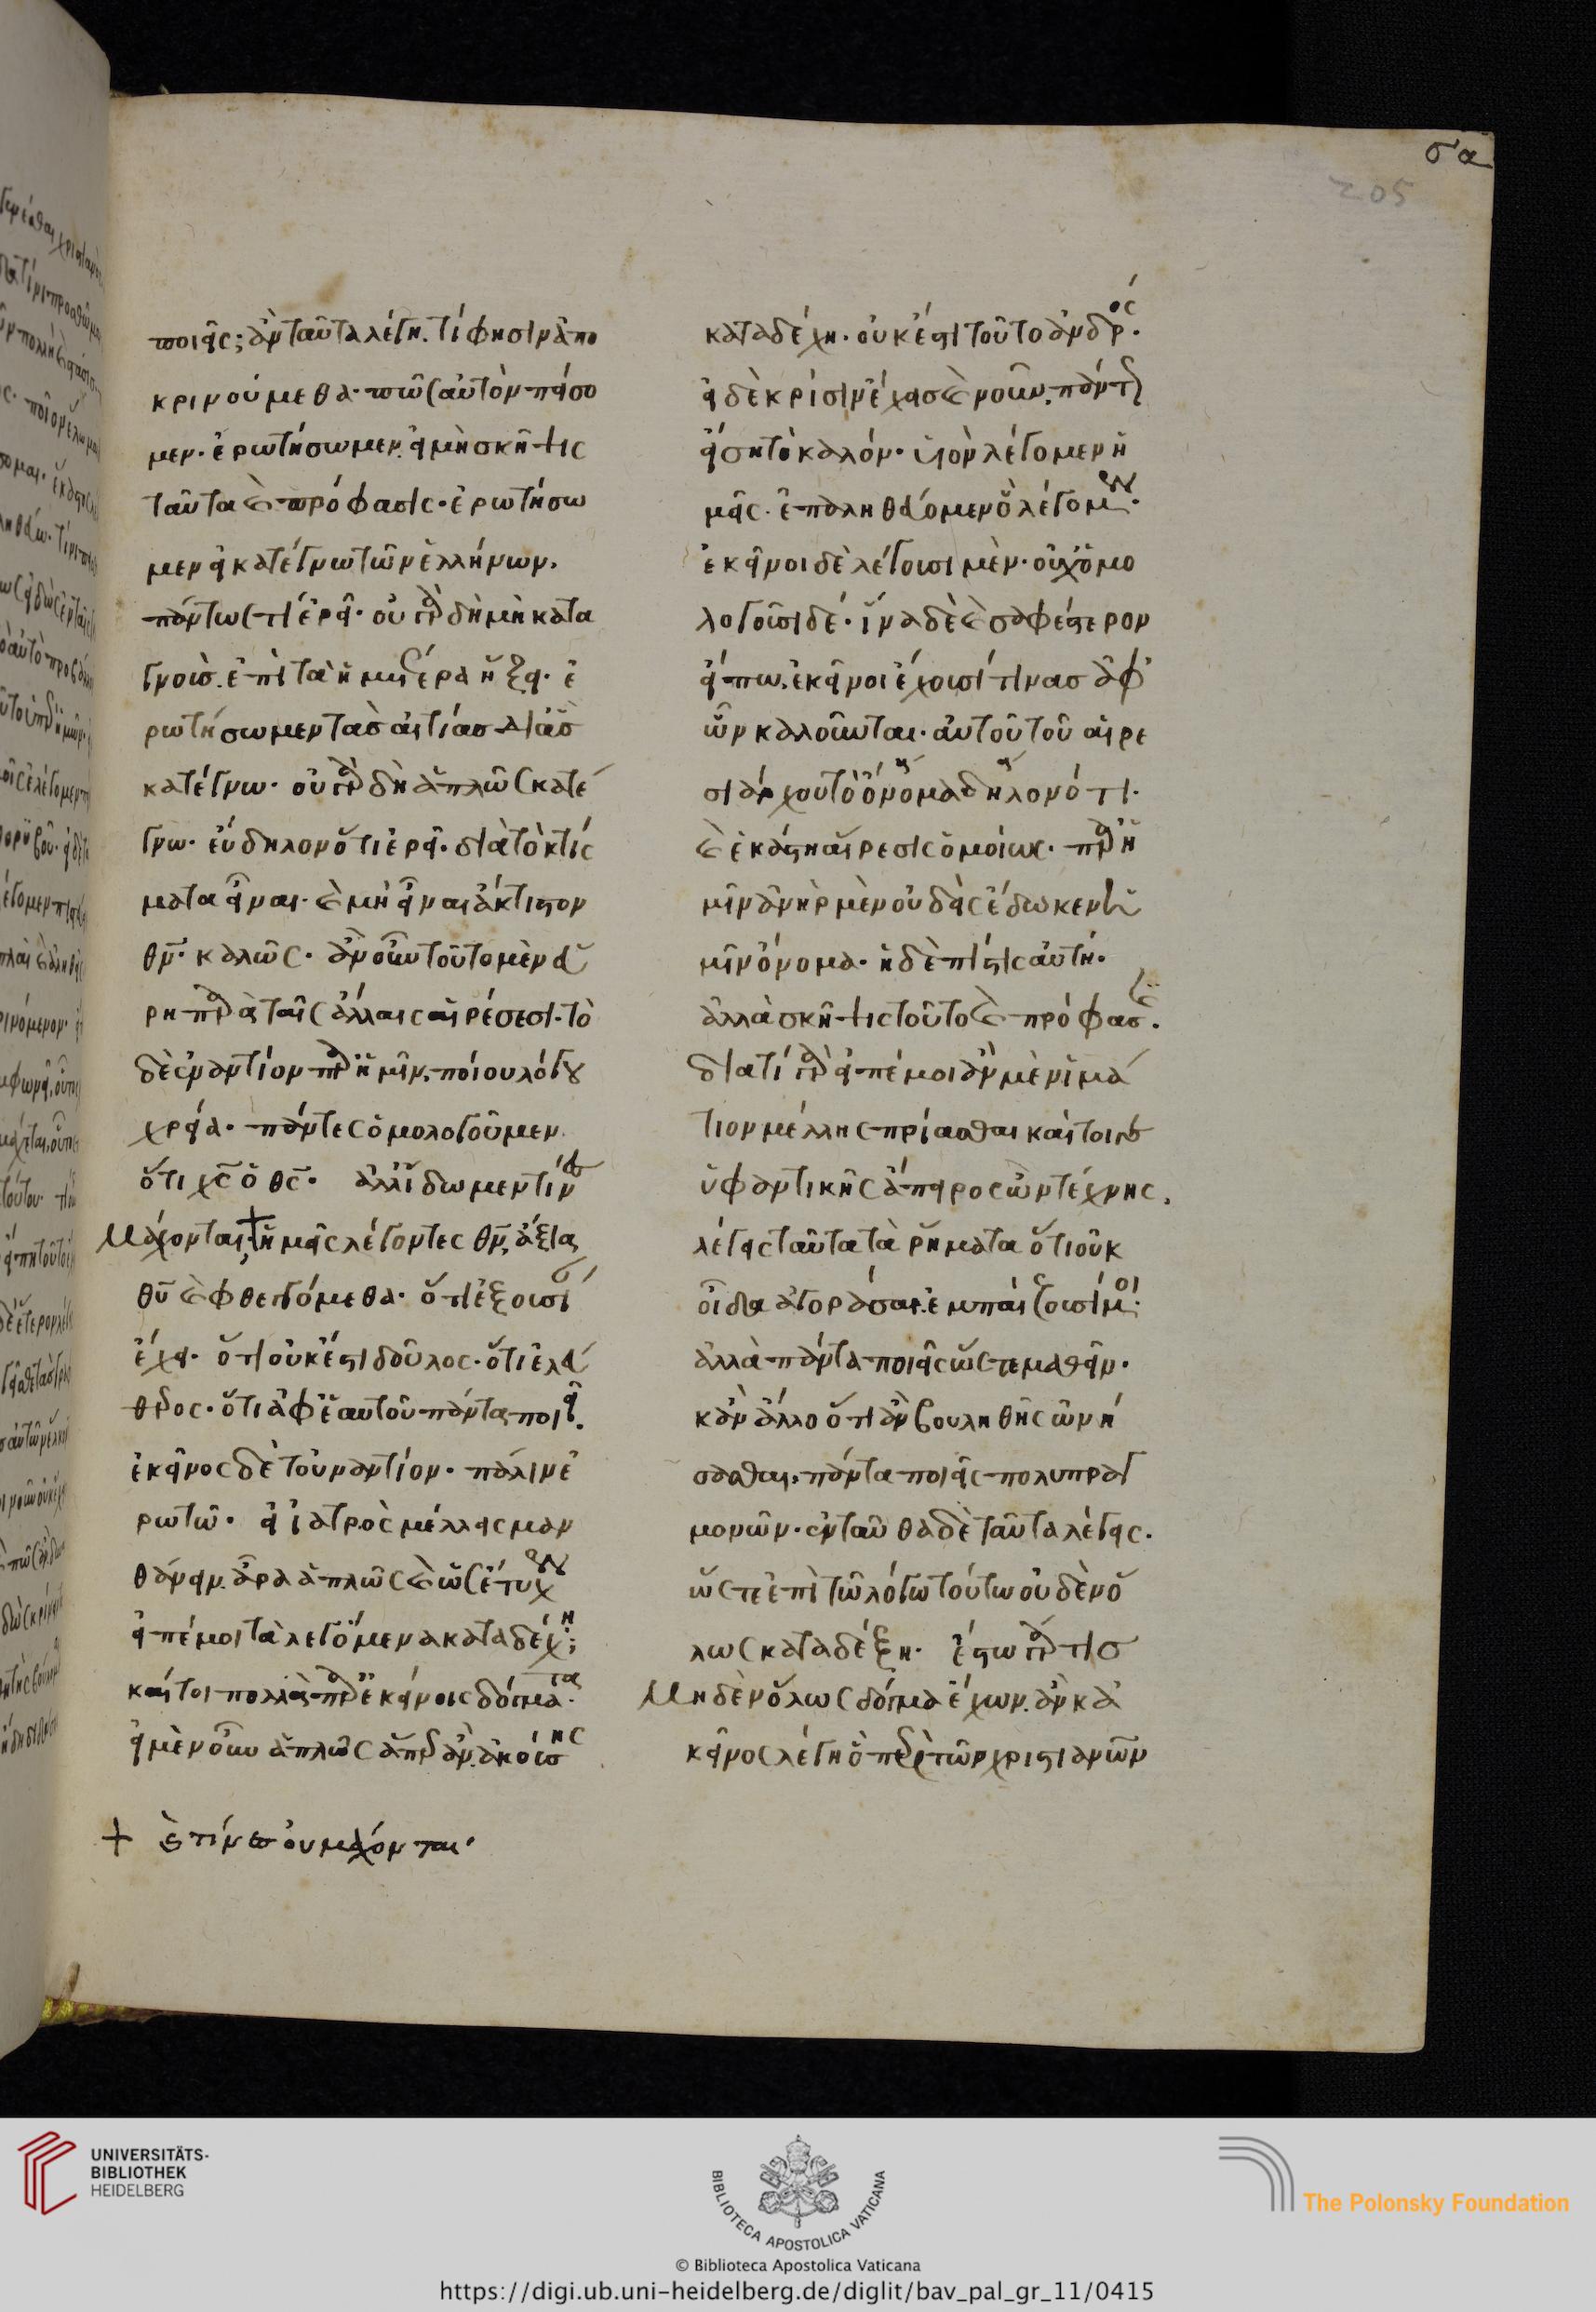 ποιεῖς; ἂν ταῦτα λέγη. τί φησιν ἀπο
κρινούμεθα. πῶς αὐτὸν πείσο
μεν. ἐρωτήσωμεν. εἰ μὴ σκῆψις
ταῦτα καὶ πρόφασις. ἐρωτήσω
μεν εἰ κατέγνω τῶν ἑλλήνων.
πάντως τι ἐρεῖ. οὐ γὰρ δὴ μὴ κατα
γνοὺσ. ἐπὶ τὰ ἡμέτερα ἥξει. ἐ
ρωτήσωμεν τὰσ αἰτίασ δι ἃσ
κατέγνω. οὐ γὰρ δὴ ἁπλῶς κατέ
γνω. εὔδηλον ὅτι ἐρεῖ. διὰ τὸ κτίς
ματα εἶναι. καὶ μὴ εἶναι ἄκτιστον
θν. καλῶς. ἂν οὖν τοῦτο μὲν εὕ
ρη παρὰ ταῖς ἄλλαις αἱρέσεσι. τὸ
δὲ ἐναντίον παρ ἡμῖν. ποίου λόγου
χρεία. πάντες ὁμολογοῦμεν
ὅτι χς ὁ θς. ἀλλ ἴδωμεν τίνες
Μάχονται + ἡμεῖς λέγοντες θν, ἄξια
θυ καὶ φθεγγόμεθα. ὅτι ἐξουσίαν
ἔχει. ὅτι οὐκ ἔστι δοῦλος. ὅτι ἐλεύ
θερος. ὅτι ἀφ ἑαυτοῦ πάντα ποιεῖ.
ἐκεῖνος δὲ τοὐναντίον. πάλιν ἐ
ρωτῶ. εἰ ἰατρὸς μέλλεις μαν
θάνειν. ἆρα ἁπλῶς καὶ ὡς ἔτυχεν
εἰπέ μοι τὰ λεγόμενα καταδέχη;
καίτοι πολλὰ παρ ἐκείνοις δόγματα.
εἰ μὲν οὖν ἁπλῶς ἅπερ ἂν ἀκούσης
+ καὶ τίνες οὐ μάχονται.
καταδέχη. οὐκ ἔστι τοῦτο ἀνδρός.
εἰ δὲ κρίσιν ἔχεισ καὶ νοῦν. πάντως
εἴση τὸ καλόν. υἱὸν λέγομεν ἡ
μεῖς. ἐπαληθεύομεν ὃ λέγομεν.
ἐκεῖνοι δὲ λέγουσι μὲν. οὐχ ὁμο
λογοῦσι δέ. ἵνα δὲ καὶ σαφέστερον
εἴπω. ἐκεῖνοι ἔχουσί τινασ ἀφ
ὧν καλοῦνται. αὐτοῦ τοῦ αἱρε
σιάρχου τὸ ὄνομα δηλονότι.
καὶ ἑκάστη αἵρεσις ὁμοίως. παρ ἡ
μῖν ἀνὴρ μὲν οὐδεὶς ἔδωκεν ἡ
μῖν ὄνομα. ἡ δὲ πίστις αὐτή.
ἀλλὰ σκῆψις τοῦτο καὶ πρόφασις.
διατί γὰρ εἰπέ μοι ἂν μὲν ἱμά
τιον μέλλης πρίασθαι καίτοι τῆς
ὑφαντικῆς ἄπειρος ὢν τέχνης,
λέγεις ταῦτα τὰ ῥήματα ὅτι οὐκ
οἶδα ἀγοράσαι. ἐμπαίζουσί μοι.
ἀλλὰ πάντα ποιεῖς ὥστε μαθεῖν.
κἂν ἄλλο ὅτι ἂν βουληθῆς ὠνή
σασθαι. πάντα ποιεῖς πολυπραγ
μονῶν. ἐνταῦθα δὲ ταῦτα λέγεις.
ὥστε ἐπὶ τῶ λόγω τούτω οὐδὲν ὅ
λως καταδέξη. ἔστω γάρ τισ
Μηδὲν ὅλως δόγμα ἔχων. ἂν κἀ
κεῖνος λέγη ὅπερ ἐπὶ τῶν χριστιανῶν
σα
205
UNIVERSITÄTS-
BIBLIOTHEK
HEIDELBERG
BIBLIOTECA APOSTOLICA VATICANA
© Biblioteca Apostolica Vaticana
The Polonsky Foundation
https://digi.ub.uni-heidelberg.de/diglit/bav_pal_gr_11/0415